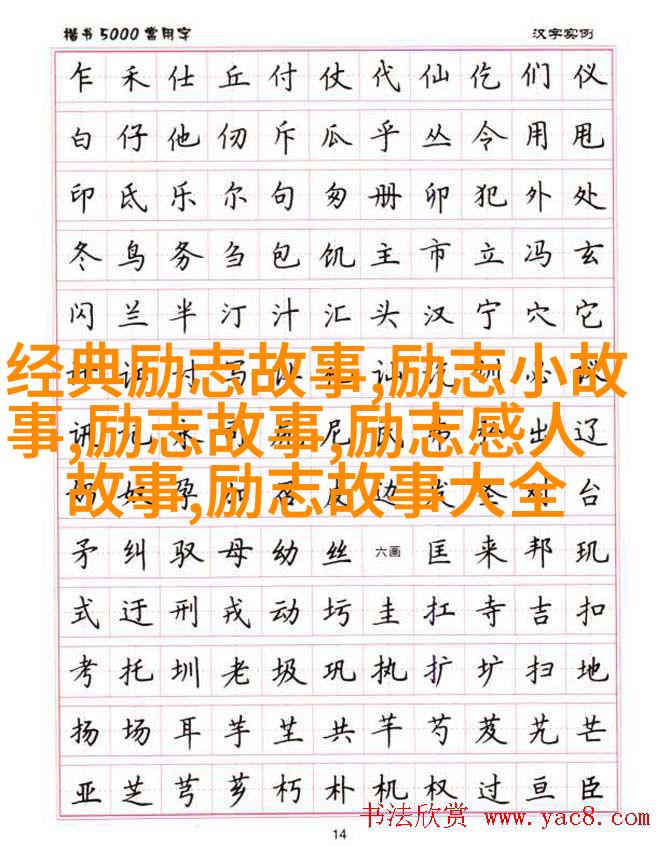 楷书5000常用字 汉字实例
乍禾仕丘付仗代仙仡们仪
白仔他仞斥瓜乎丛令用甩
印氐乐尔句匆册卯犯外处
冬鸟务刍包饥主市立冯玄
闪兰半汀汁汇头汉宁穴它
经典励志故事,励志小故
事,励志故事,励志感人
故事,励志故事大全
出辽
台
矛纠驭母幼丝六画匡来邦玑
式迂刑戎动圬圭扛寺吉扣
考托圳老圾巩执扩圹扫地
扬场耳芋芏共芊芍芨艽芒
亚芝芎芗朽朴机权过亘臣
书法欣赏 www.yac8.com
14